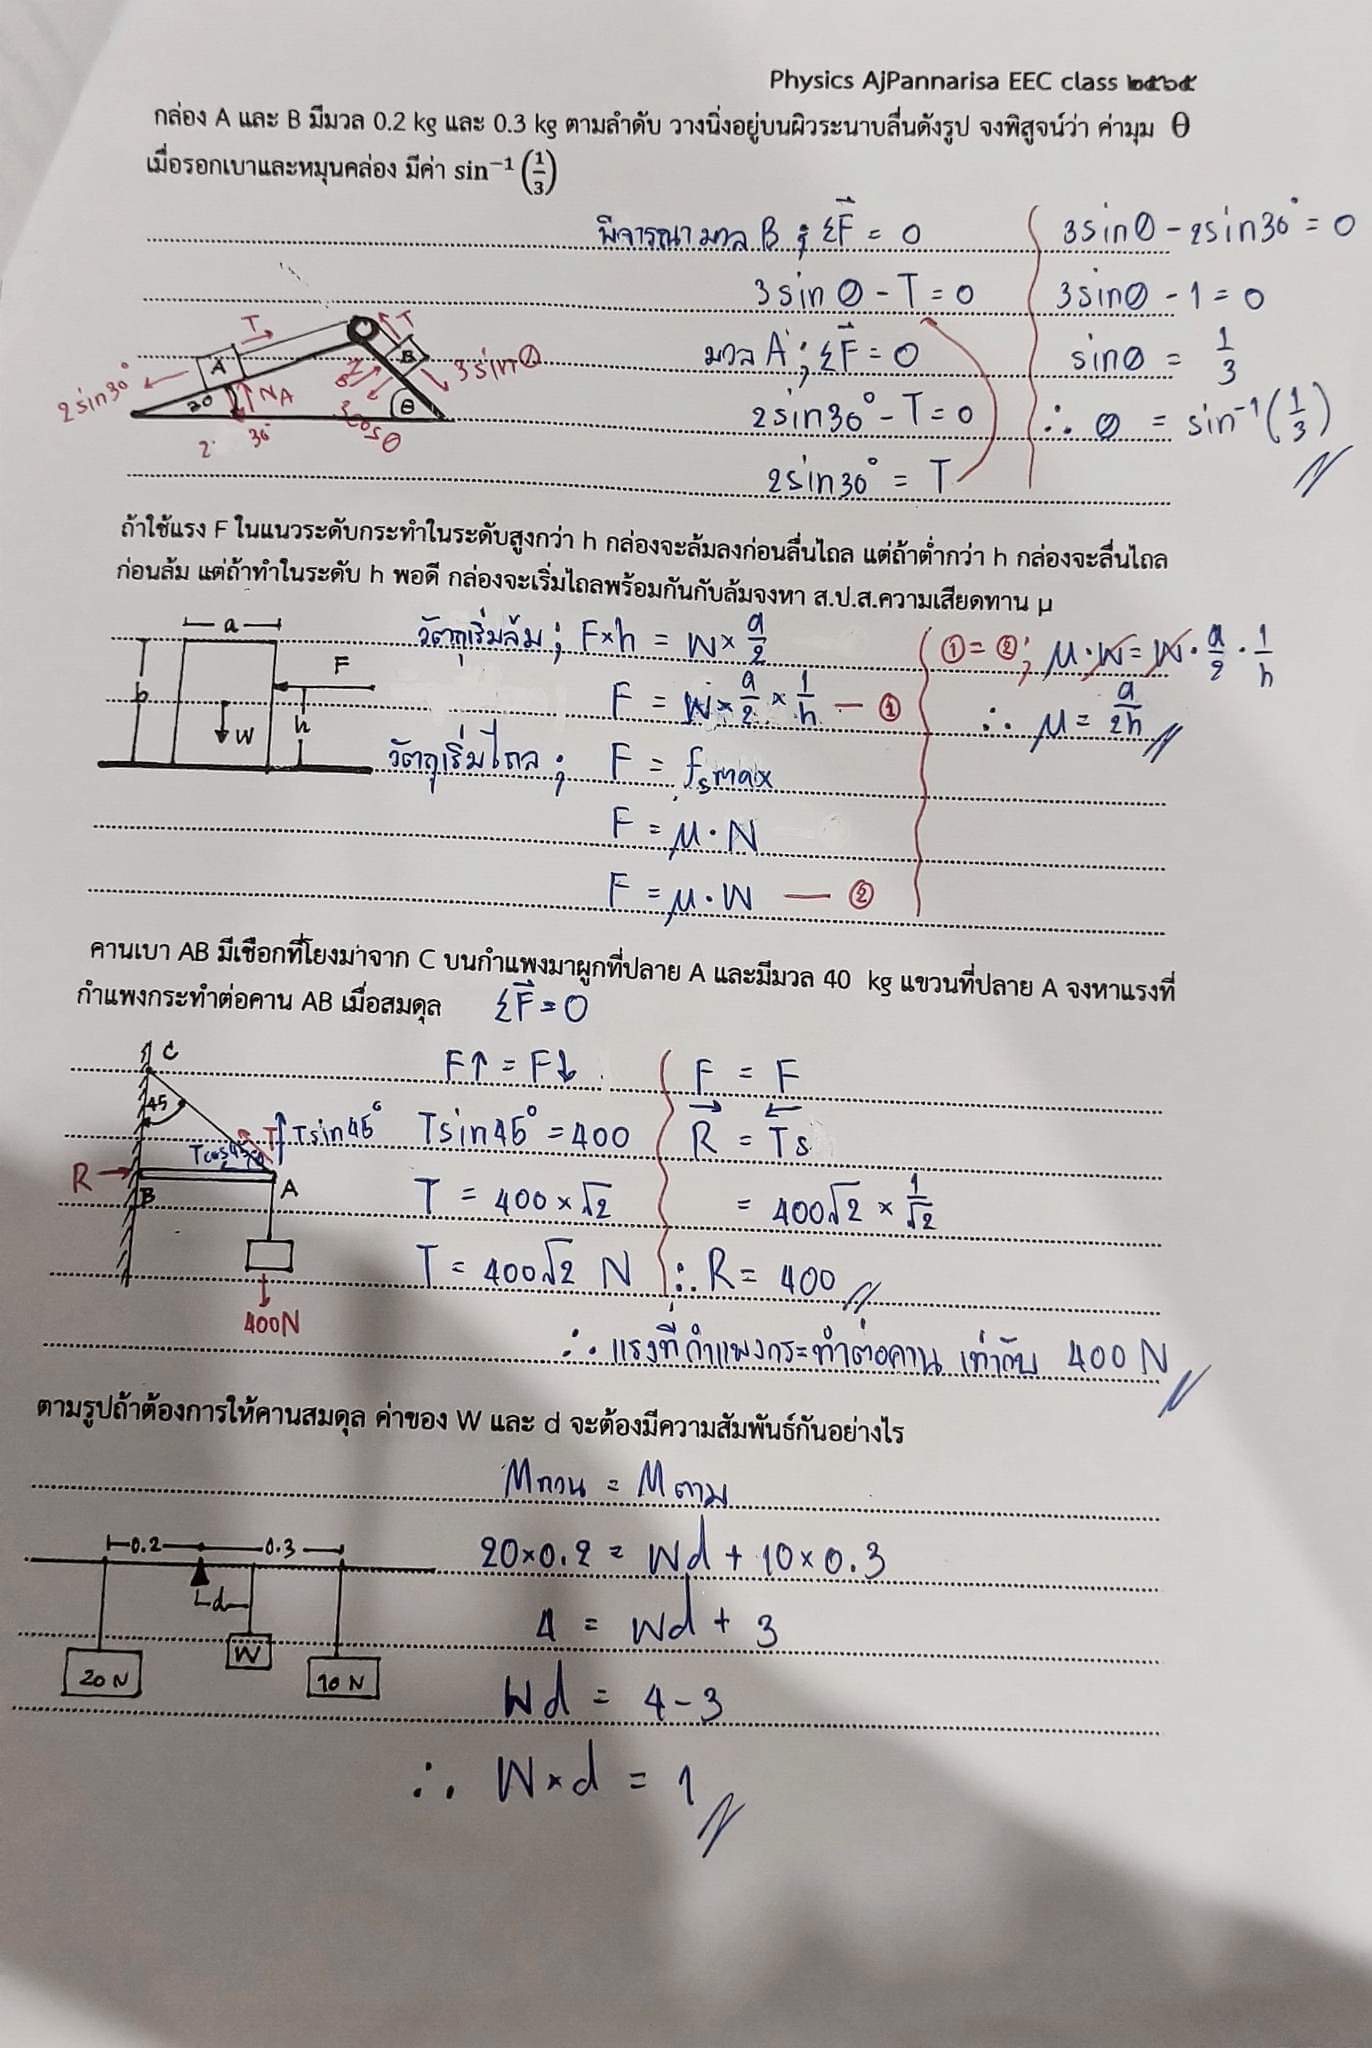 Physics AjPannarisa EEC class ๒๕๖๕
กล่อง A และ B มีมวล 0.2 kg และ 0.3 kg ตามลำดับ วางนิ่งอยู่บนผิวระนาบลื่นดังรูป จงพิสูจน์ว่า ค่ามุม θ
เมื่อรอกเบาและหมุนคล่อง มีค่า sin⁻¹(1/3)
พิจารณา มวล B ; ΣF⃗ = 0
3sinθ - T = 0
มวล A ; ΣF⃗ = 0
2sin30° - T = 0
2sin30° = T
3sinθ - 2sin30° = 0
3sinθ - 1 = 0
sinθ = 1/3
∴ θ = sin⁻¹(1/3)
T
T
A
B
2sin30°
3sinθ
NA
30°
θ
3cosθ
ถ้าใช้แรง F ในแนวระดับกระทำในระดับสูงกว่า h กล่องจะล้มลงก่อนลื่นไถล แต่ถ้าต่ำกว่า h กล่องจะลื่นไถล
ก่อนล้ม แต่ถ้าทำในระดับ h พอดี กล่องจะเริ่มไถลพร้อมกันกับล้มจงหา ส.ป.ส.ความเสียดทาน μ
a
b
F
h
W
วัตถุเริ่มล้ม ; F×h = W × a/2
F = W × a/2 × 1/h — ①
วัตถุเริ่มไถล ; F = fsmax
F = μ·N
F = μ·W — ②
① = ② ; μ·W = W · a/2 · 1/h
∴ μ = a/2h
คานเบา AB มีเชือกที่โยงมาจาก C บนกำแพงมาผูกที่ปลาย A และมีมวล 40 kg แขวนที่ปลาย A จงหาแรงที่
กำแพงกระทำต่อคาน AB เมื่อสมดุล ΣF⃗ = 0
C
45
T
Tsin45°
R
B
A
400N
F↑ = F↓
Tsin45° = 400
T = 400 × √2
T = 400√2 N
F→ = F←
= 400√2 × 1/√2
∴ R = 400
∴ แรงที่กำแพงกระทำต่อคาน เท่ากับ 400 N
ตามรูปถ้าต้องการให้คานสมดุล ค่าของ W และ d จะต้องมีความสัมพันธ์กันอย่างไร
0.2
0.3
d
20 N
W
10 N
Mทวน = Mตาม
20×0.2 = Wd + 10×0.3
4 = Wd + 3
Wd = 4 - 3
∴ W×d = 1